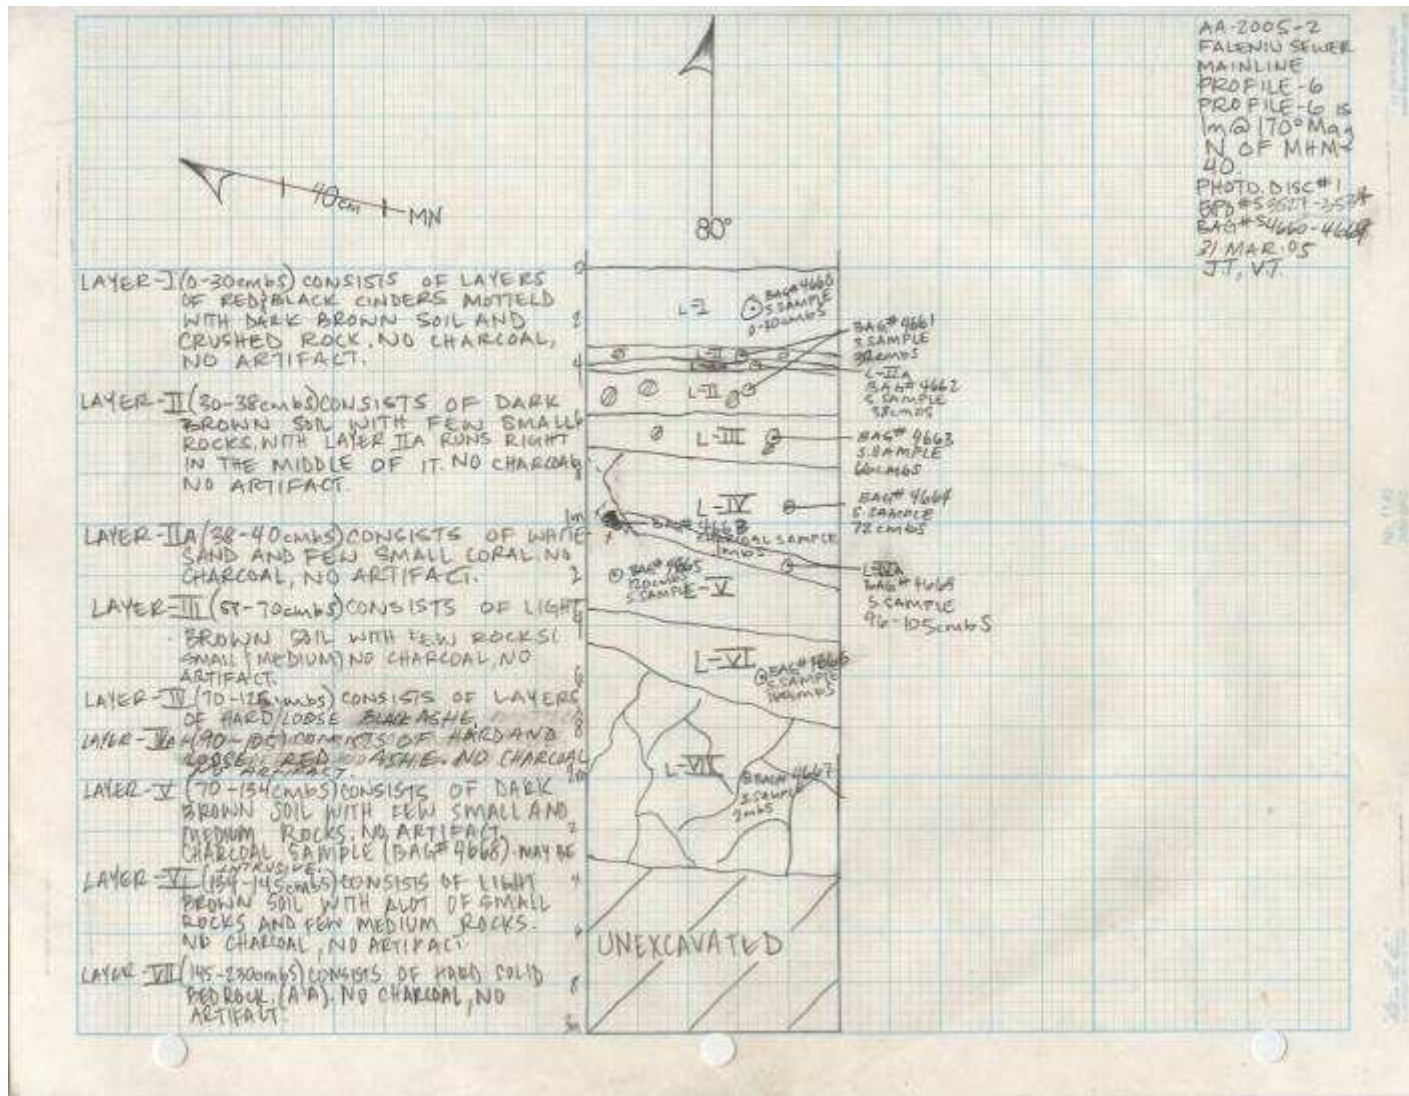 AA-2005-2
FALENIU SEWER
MAINLINE
PROFILE-6
PROFILE-6 is
1m@170° Mag
N OF MHM-
40.
PHOTO. DISC#1
BAG#s4660-4669
31 MAR.05
JT, VT.
40cm
MN
80°
LAYER-I (0-30cmbs) CONSISTS OF LAYERS
OF RED/BLACK CINDERS MOTTELD
WITH DARK BROWN SOIL AND
CRUSHED ROCK. NO CHARCOAL,
NO ARTIFACT.
LAYER-II (30-38cmbs) CONSISTS OF DARK
BROWN SOIL WITH FEW SMALL
ROCKS, WITH LAYER IIA RUNS RIGHT
IN THE MIDDLE OF IT. NO CHARCOAL,
NO ARTIFACT.
LAYER-IIA (38-40cmbs) CONSISTS OF WHITE
SAND AND FEW SMALL CORAL. NO
CHARCOAL, NO ARTIFACT.
LAYER-III (58-70cmbs) CONSISTS OF LIGHT
BROWN SOIL WITH FEW ROCKS(
SMALL/MEDIUM) NO CHARCOAL, NO
ARTIFACT.
LAYER-IV (70-125cmbs) CONSISTS OF LAYERS
OF HARD/LOOSE BLACK ASHE.
LAYER-IVA (90-105) CONSISTS OF HARD AND
LOOSE RED ASHE. NO CHARCOAL
NO ARTIFACT.
LAYER-V (70-134cmbs) CONSISTS OF DARK
BROWN SOIL WITH FEW SMALL AND
MEDIUM ROCKS. NO ARTIFACT.
CHARCOAL SAMPLE (BAG#4668) MAY BE
INTRUSIVE.
LAYER-VI (134-145cmbs) CONSISTS OF LIGHT
BROWN SOIL WITH ALOT OF SMALL
ROCKS AND FEW MEDIUM ROCKS.
NO CHARCOAL, NO ARTIFACT
LAYER-VII (145-230cmbs) CONSISTS OF HARD SOLID
BEDROCK. (A'A). NO CHARCOAL, NO
ARTIFACT.
0
2
4
6
8
1m
2
4
6
8
2m
2
4
6
8
3m
L-I
BAG#4660
S.SAMPLE
0-30cmbs
L-II
BAG#4661
S.SAMPLE
32cmbs
L-IIA
BAG#4662
S.SAMPLE
38cmbs
L-II
L-III
BAG#4663
S.SAMPLE
66cmbs
L-IV
BAG#4664
S.SAMPLE
72cmbs
BAG#4668
CHARCOAL SAMPLE
1mbs
L-IVA
BAG#4669
S.SAMPLE
96-105cmbs
BAG#4665
120cmbs
S.SAMPLE
L-V
L-VI
BAG#4666
S.SAMPLE
140cmbs
L-VII
BAG#4667
S.SAMPLE
2mbs
UNEXCAVATED